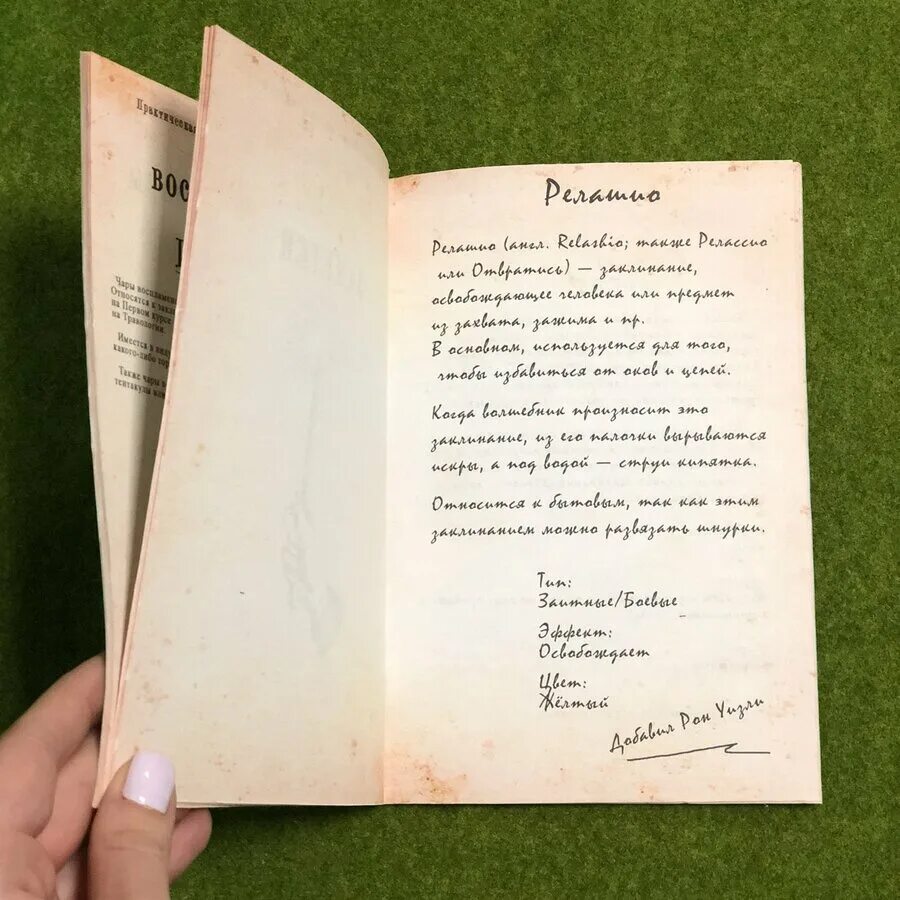 Практическая
ВОС
Чары воспламен
Относятся к закл
на Первом курсе
на Травологии.
Имеется в виду
какого-либо
Также чары
тентакулы
Релашио
Релашио (англ. Relashio; также Релассио
или Отвратись) — заклинание,
освобождающее человека или предмет
из захвата, зажима и пр.
В основном, используется для того,
чтобы избавиться от оков и цепей.
Когда волшебник произносит это
заклинание, из его палочки вырываются
искры, а под водой — струи кипятка.
Относится к бытовым, так как этим
заклинанием можно развязать шнурки.
Тип:
Заитные/Боевые
Эффект:
Освобождает
Цвет:
Жёлтый
Добавил Рон Уизли